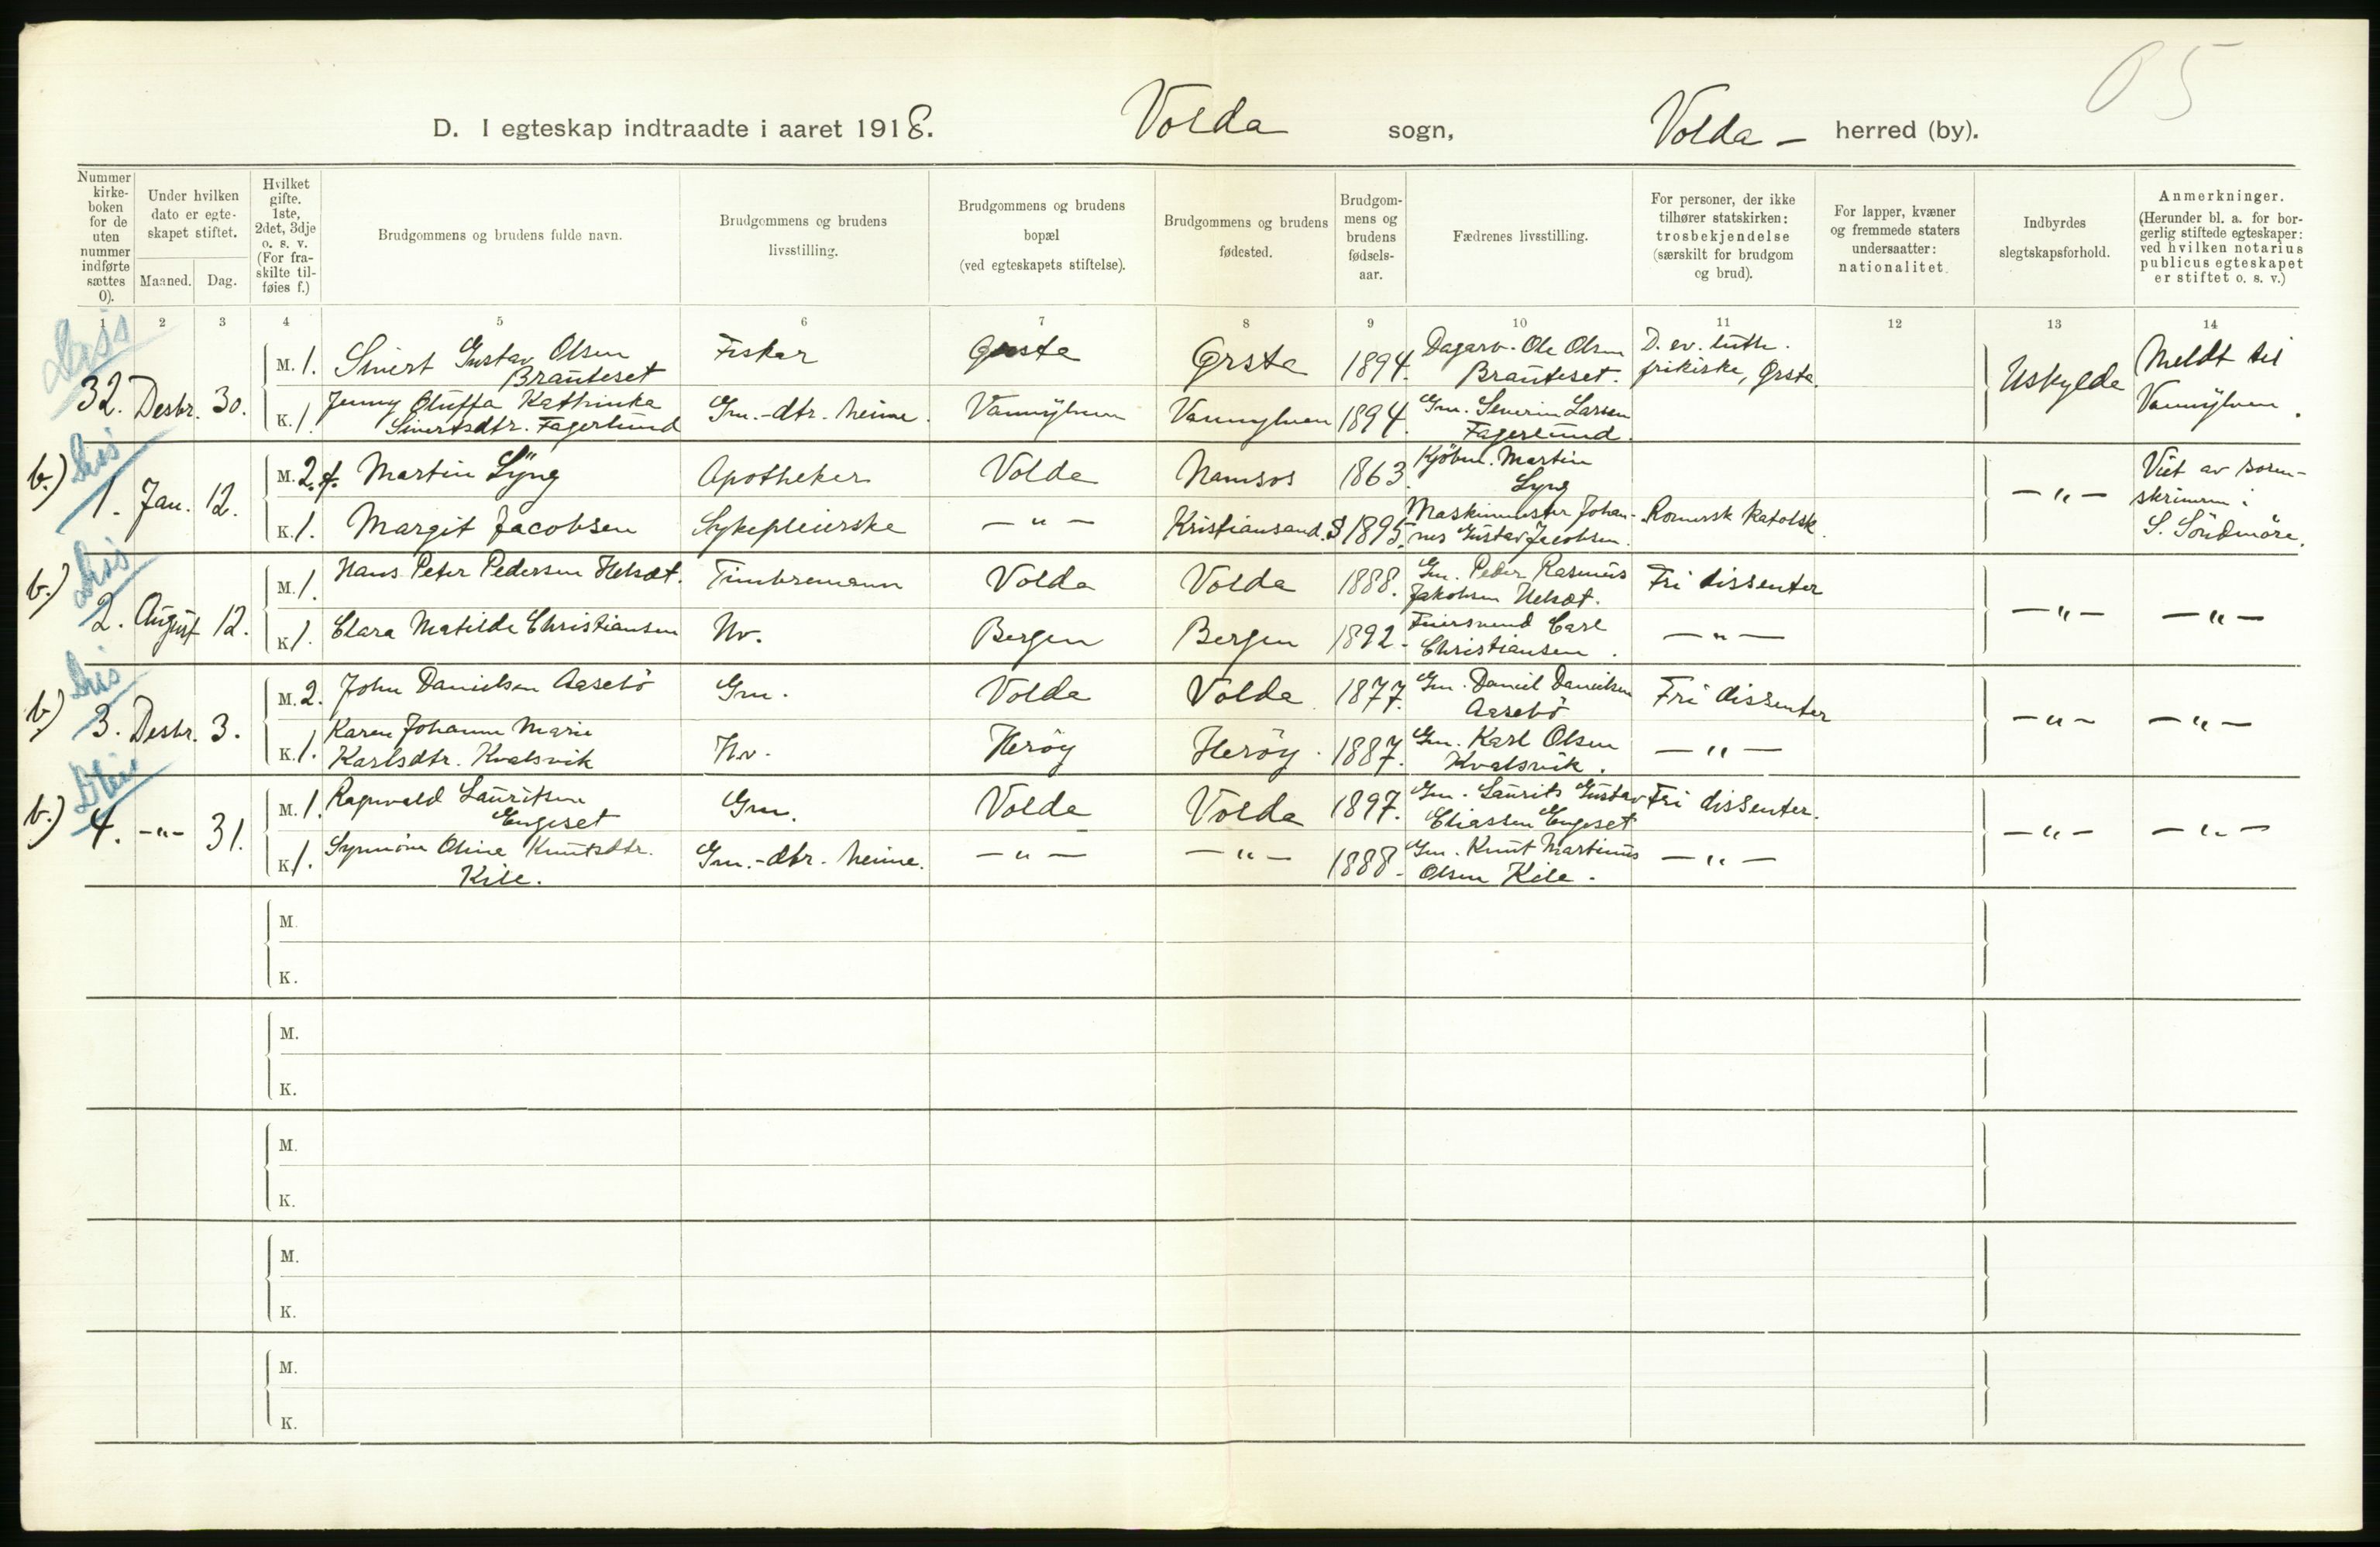 05
D. I egteskap indtraadte i aaret 1918. Volda sogn, Volda - herred (by).
Nummer kirke-boken for de uten nummer indførte sættes 0).
Under hvilken dato er egte-skapet stiftet.
Maaned. Dag.
Hvilket gifte. 1ste, 2det, 3dje o. s. v. (For fra-skilte til-føies f.)
Brudgommens og brudens fulde navn.
Brudgommens og brudens livsstilling.
Brudgommens og brudens bopæl (ved egteskapets stiftelse).
Brudgommens og brudens fødested.
Brudgom-mens og brudens fødsels-aar.
Fædrenes livsstilling.
For personer, der ikke tilhører statskirken: trosbekjendelse (særskilt for brudgom og brud).
For lapper, kvæner og fremmede staters undersaatter: nationalitet.
Indbyrdes slegtskapsforhold.
Anmerkninger. (Herunder bl. a. for bor-gerlig stiftede egteskaper: ved hvilken notarius publicus egteskapet er stiftet o. s. v.)
1 2 3 4 5 6 7 8 9 10 11 12 13 14
Diss
32. Desbr. 30.
M. 1. Sivert Gustav Olsen Brauteset Fiskar Ørsta Ørsta 1894. Dagarb. Ole Olsen Brauteset. D. ev. luth. frikirke, Ørsta.
K. 1. Jenny Oluffa Kathinka Sivertsdtr. Fagerlund Gm.-dtr. heime. Vannylven Vannylven 1894. Gm. Severin Larsen Fagerlund.
Uskylde Meldt til Vannylven.
Diss
b.) 1. Jan. 12.
M. 2. f. Martin Lyng Apotheker Volda Namsos 1863. Kjøbm. Martin Lyng
K. 1. Margit Jacobsen Sykepleierske - " - Kristiansand. S 1895. Maskinmester Johan-nes Gustav Jacobsen. Romersk katolsk.
- " - Viet av soren-skriveren i S. Söndmöre.
Diss
b.) 2. August 12.
M. 1. Hans Peter Pedersen Helsæt. Timbremann Volda Volda 1888. Gm. Peder Rasmus Jakobsen Helsæt. Fri dissenter
K. 1. Clara Matilde Christiansen Hv. Bergen Bergen 1892. Carl Christiansen. - " -
- " - - " -
Dis
b) 3. Desbr. 3.
M. 2. John Danielsen Aasebö Gm. Volda Volda 1877. Gm. Daniel Danielsen Aasebö Fri dissenter
K. 1. Karen Johanne Marie Karlsdtr. Kvalsvik Hv. Heröy Heröy. 1887. Gm. Karl Olsen Kvalsvik. - " -
- " - - " -
b.) 4. - " - 31.
M. 1. Ragnvald Lauritsen Engeset Gm. Volda Volda 1897. Gm. Laurits Gustav Eliassen Engeset Fri dissenter.
K. 1. Synnöve Oline Knutsdtr. Kile. Gm.-dtr. heime. - " - - " - 1888. Gm. Knut Martinus Olsen Kile. - " -
- " - - " -
M.
K.
M.
K.
M.
K.
M.
K.
M.
K.